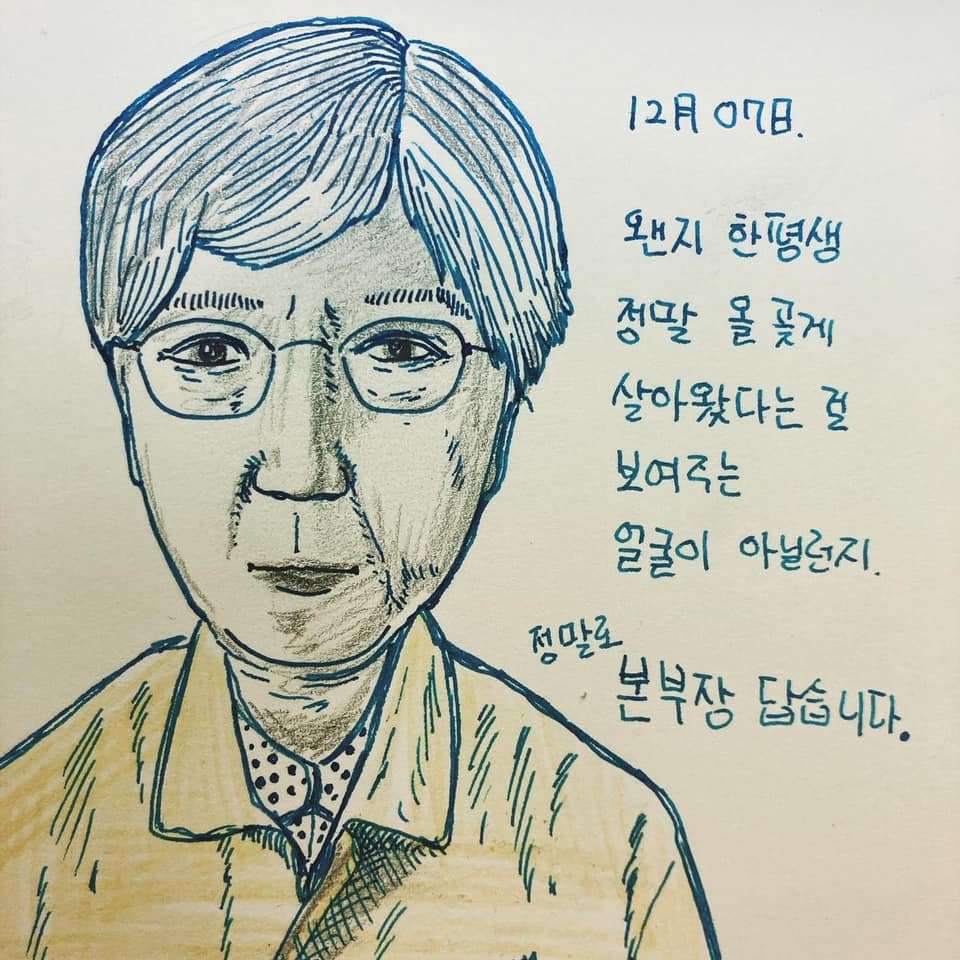 12月 07日.
왠지 한평생
정말 올곶게
살아왔다는 걸
보여주는
얼굴이 아닐런지.
정말로
본부장 답습니다.